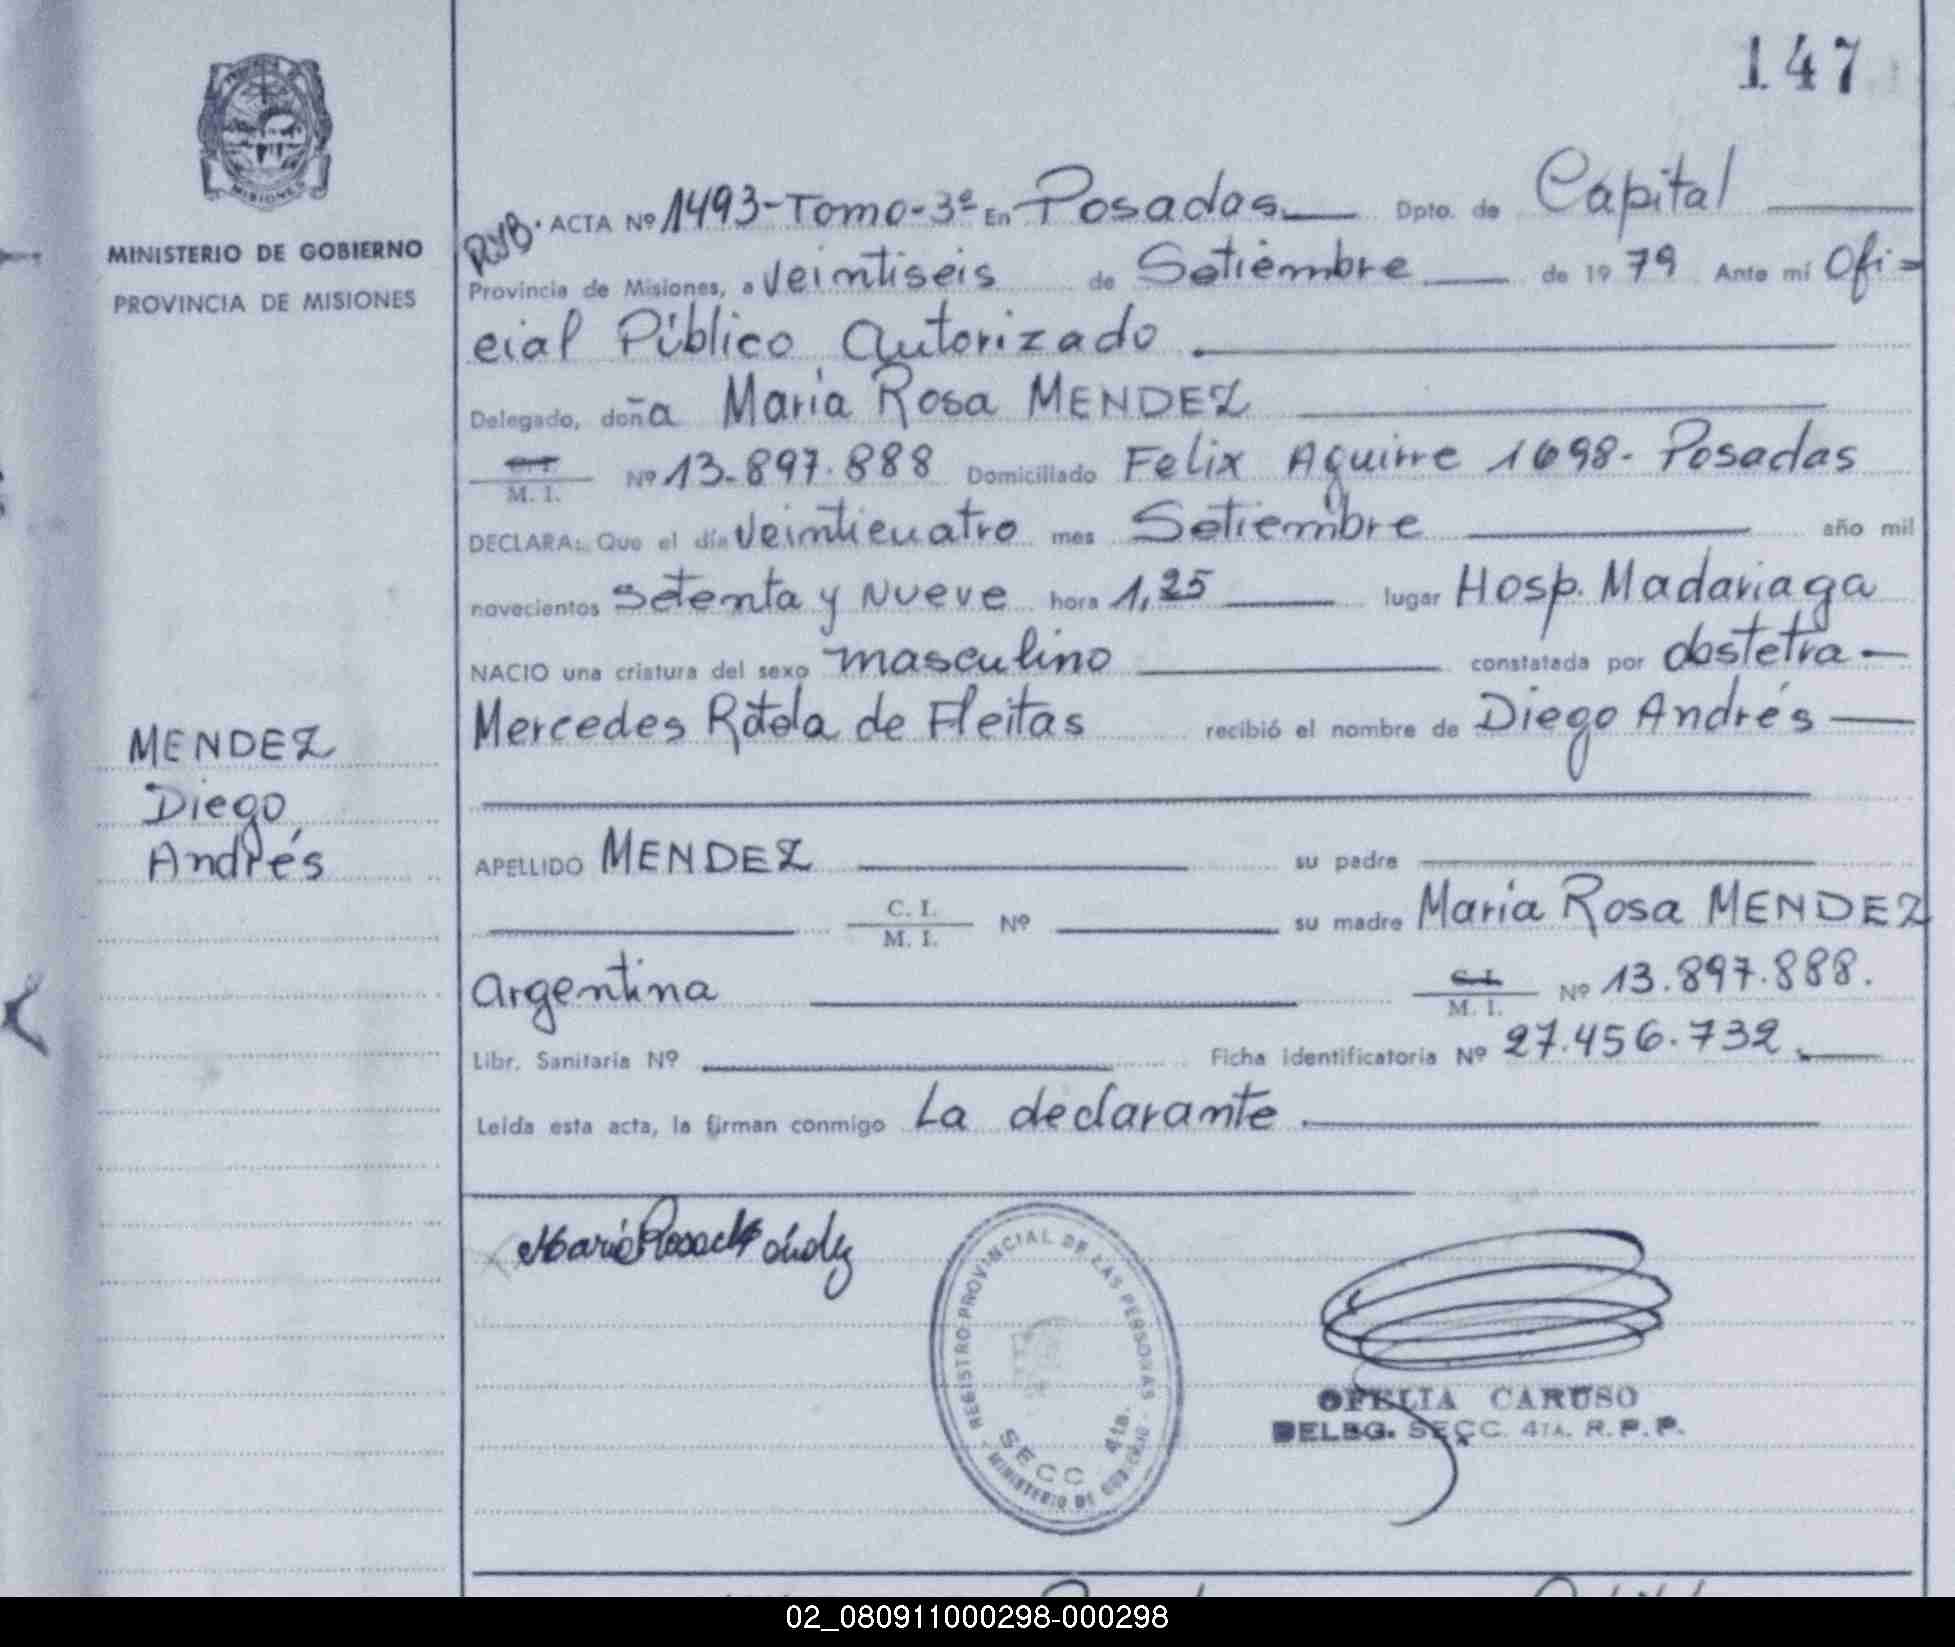 147
PROVINCIA DE
MISIONES
MINISTERIO DE GOBIERNO
PROVINCIA DE MISIONES
MENDEZ
Diego
Andrés
RVB. ACTA Nº 1493-Tomo-3º En Posadas Dpto. de Capital
Provincia de Misiones, a veintiseis de Setiembre de 1979 Ante mí Ofi=
cial Público Autorizado.
Delegado, doña Maria Rosa MENDEZ
C. I. M. I. Nº 13.897.888 Domiciliado Felix Aguirre 1698- Posadas
DECLARA: Que el día veinticuatro mes Setiembre año mil
novecientos setenta y nueve hora 1,25 lugar Hosp. Madariaga
NACIO una criatura del sexo masculino constatada por obstetra
Mercedes Rotela de Fleitas recibió el nombre de Diego Andrés
APELLIDO MENDEZ su padre
C. I. M. I. Nº su madre Maria Rosa MENDEZ
argentina C. I. M. I. Nº 13.897.888.
Libr. Sanitaria Nº Ficha identificatoria Nº 27.456.732.
Leída esta acta, la firman conmigo La declarante.
Maria Rosa Mendez
REGISTRO PROVINCIAL DE LAS PERSONAS
SECC 4ta.
MINISTERIO DE GOBIERNO
OFELIA CARUSO
DELEG. SECC. 4TA. R. P. P.
02_080911000298-000298